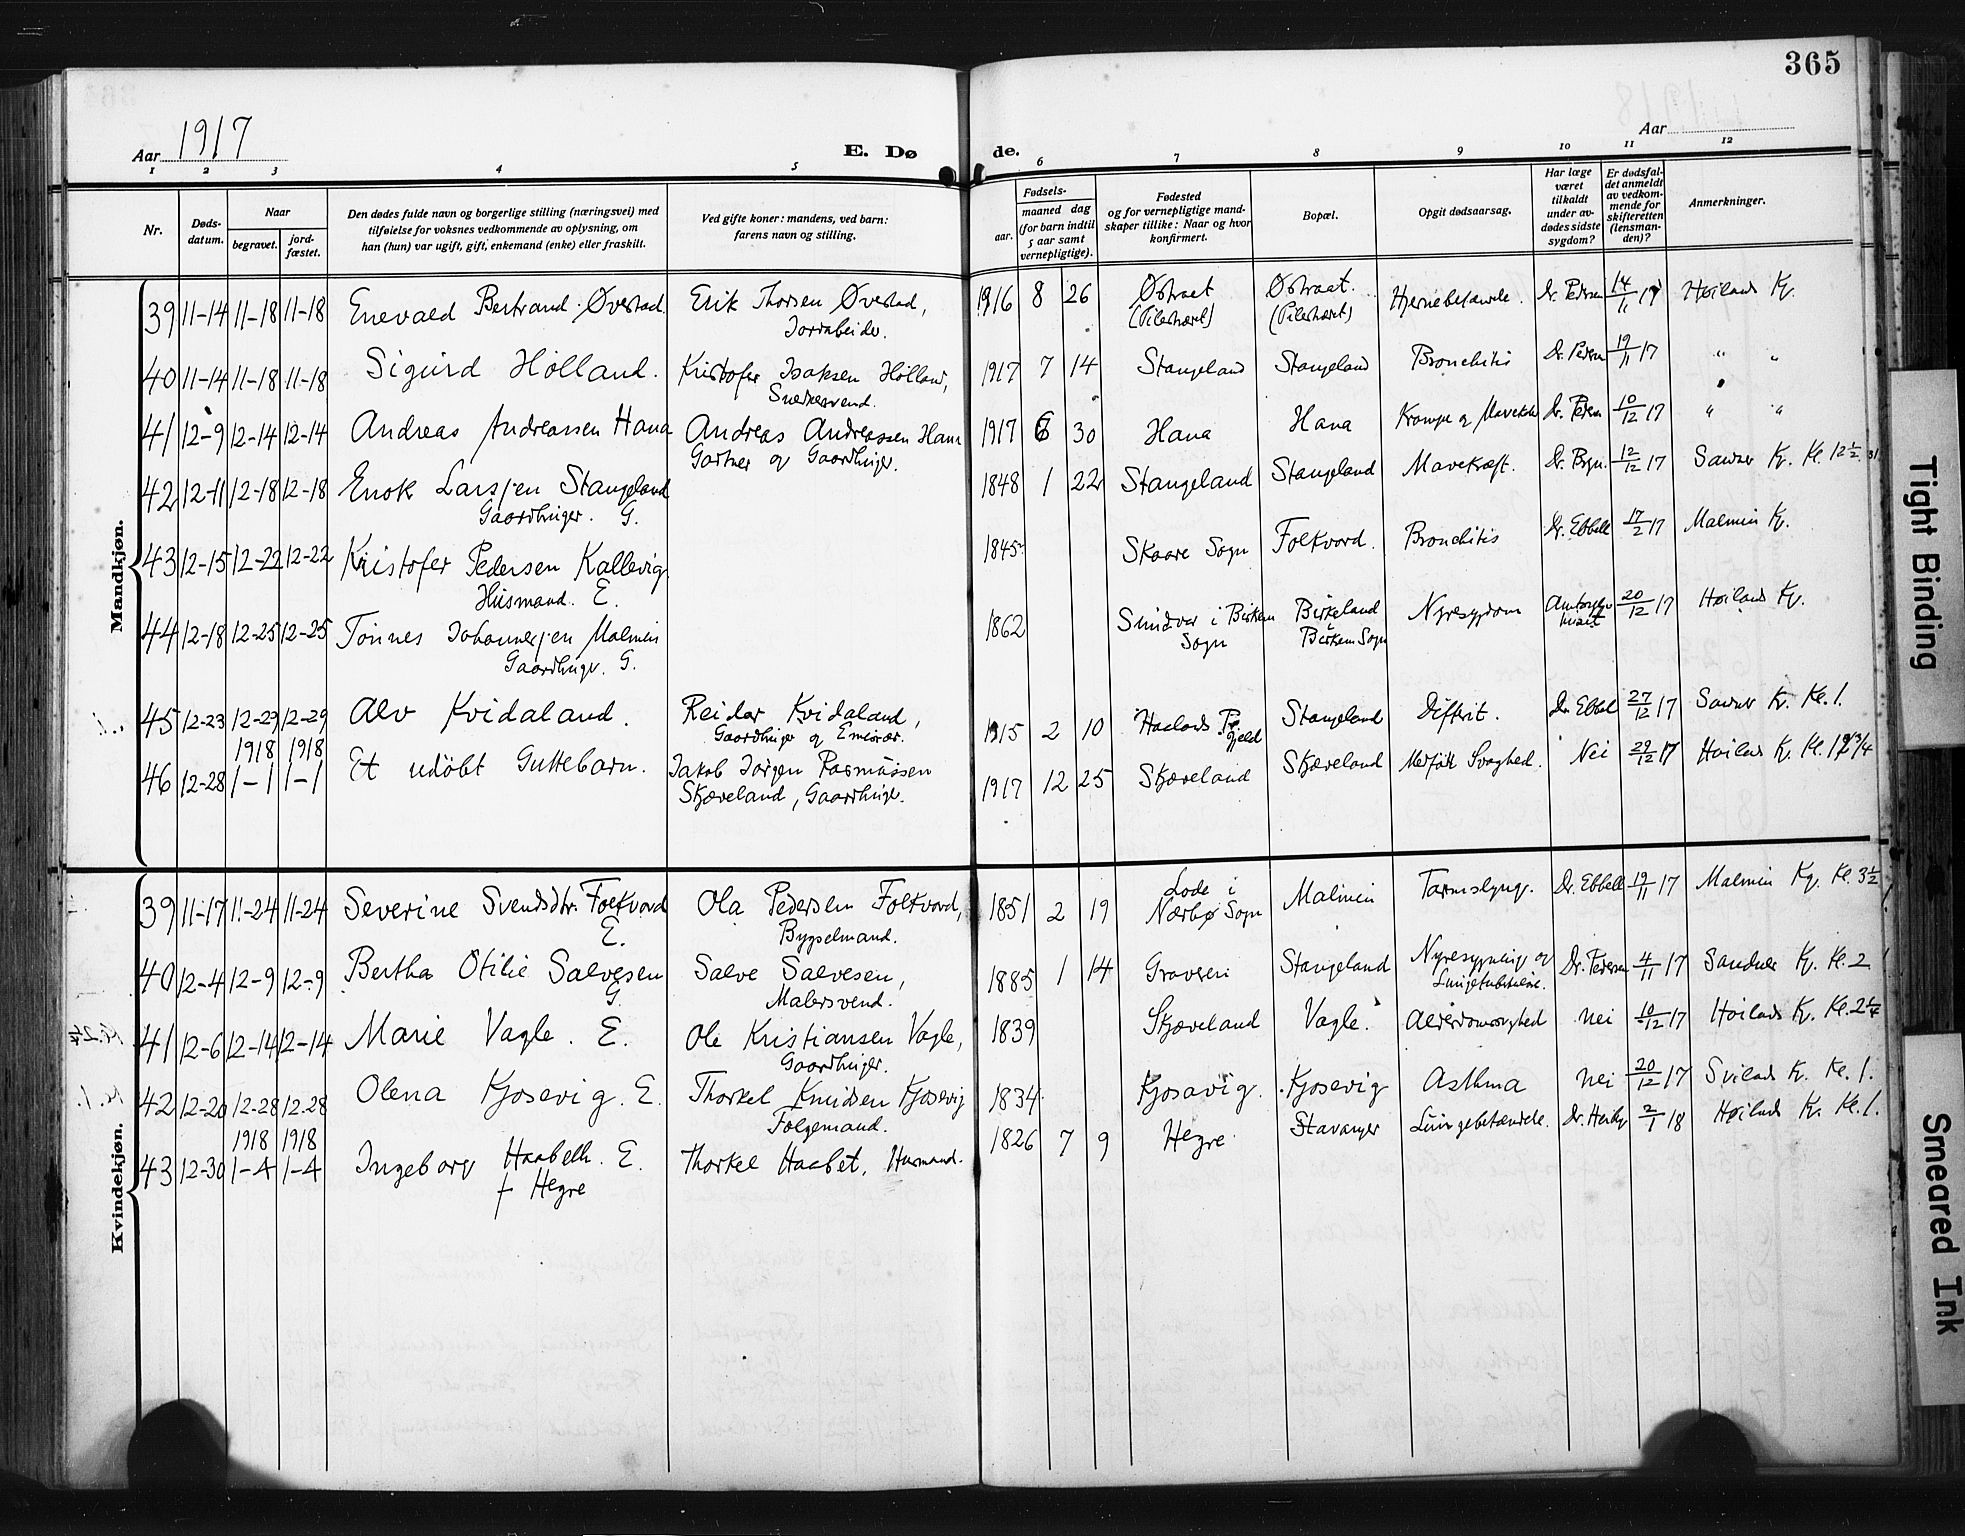 365
Aar 1917
E. Døde.
Aar
1 2 3 4 5 6 7 8 9 10 11 12
Nr.
Dødsdatum.
Naar
begravet.
jordfæstet.
Den dødes fulde navn og borgerlige stilling (næringsvei) med
tilføielse for voksnes vedkommende av oplysning, om
han (hun) var ugift, gift, enkemand (enke) eller fraskilt.
Ved gifte koner: mandens, ved barn:
farens navn og stilling.
Fødsels-
aar.
maaned dag
(for barn indtil
5 aar samt
vernepligtige).
Fødested
og for vernepligtige mand-
skaper tillike: Naar og hvor
konfirmert.
Bopæl.
Opgit dødsaarsag.
Har læge
været
tilkaldt
under av-
dødes sidste
sygdom?
Er dødsfal-
det anmeldt
av vedkom-
mende for
skifteretten
(lensman-
den)?
Anmerkninger.
Mandkjøn.
39 11-14 11-18 11-18 Enevald Bertrand Øvestad. Erik Thorsen Øvestad, 1916 8 26 Østraat Østraat. Hjernebetændelse. Dr. Pedersen 14/11 17 Høilands Kg.
Jordarbeider.
40 11-14 11-18 11-18 Sigurd Holland. Kristofer Isaksen Holland, 1917 7 14 Stangeland Stangeland Bronchitis Dr. Pedersen 19/11 17 " "
Snekkersvend.
41 12-9 12-14 12-14 Andreas Andreassen Hana Andreas Andreassen Hana 1917 6 30 Hana Hana Krampe og Dr. Pedersen 10/12 17 " "
Gartner og Gaardbruger.
42 12-11 12-18 12-18 Enok Larssen Stangeland 1848 1 22 Stangeland Stangeland Mavekræft. Dr. 12/12 17 Sandnes Kg. Kl. 12½
Gaardbruger. G.
43 12-15 12-22 12-22 Kristofer Pedersen Kallevig 1845 Skaare Sogn Folkvord. Bronchitis Dr. Ebbell 17/2 17 Malmin Kg.
Husmand. E.
44 12-18 12-25 12-25 Tønnes Johannessen Malmin 1862 i Birkem Birkeland Nyresygdom 20/12 17 Høilands Kg.
Gaardbruger. G. Sogn i Birkem Sogn
45 12-23 12-29 12-29 Alv Kvidaland. Reidar Kvidaland, 1915 2 10 Haalands Pgjeld Stangeland Difterit. Dr. Ebbell 27/12 17 Sandnes Kg. Kl. 1.
Gaardbruger og Emissær.
1918 1918
46 12-28 1-1 1-1 Et udøbt Guttebarn. Jakob Jørgen Rasmussen 1917 12 25 Skjæveland Skjæveland Medfødt Svaghed. Nei 29/12 17 Høilands Kg. Kl.
Skjæveland, Gaardbruger.
Kvindekjøn.
39 11-17 11-24 11-24 Severine Svendsdtr. Folkvord Ola Pedersen Folkvord, 1851 2 19 Lode i Malmin Tarmslyng. Dr. Ebbell 19/11 17 Malmin Kg. Kl. 3½
E. Bygselmand. Nærbø Sogn
40 12-4 12-9 12-9 Bertha Otilie Salvesen Salve Salvesen, 1885 1 14 Gravseri Stangeland Nyresygdom og Dr. Pedersen 4/11 17 Sandnes Kg. Kl. 2
G. Malersvend. Lungetuberkulose.
41 12-6 12-14 12-14 Marie Vagle. E. Ole Kristiansen Vagle, 1839 Skjæveland Vagle. Alderdomssvaghed Nei 10/12 17 Høilands Kg. Kl. 2¼
Gaardbruger.
42 12-20 12-28 12-28 Olena Kjosevig. E. Thorkel Knudsen Kjosevig 1834 Kjosavig. Kjosevig Asthma Nei 20/12 17 Svilands Kg. Kl. 1.
Følgemand.
1918 1918
43 12-30 1-4 1-4 Ingeborg Haabeth. E. Thorkel Haabet, Husmand. 1826 7 9 Hegre Stavanger Lungebetændelse. Dr. 2/1 18 Høilands Kg. Kl. 1.
f Hegre
Tight Binding
Smeared Ink